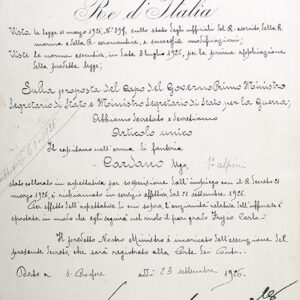 Re d'Italia
Vista la legge 11 marzo 1926, N° 397, sullo stato degli ufficiali del R. esercito, della R.
marina e della R. aeronautica, e successive modificazioni;
Viste le norme esecutive, in data 8 luglio 1926, per la prima applicazione
della predetta legge;
Sulla proposta del Capo del Governo Primo Ministro
Segretario di Stato e Ministro Segretario di Stato per la Guerra;
Abbiamo decretato e decretiamo
Articolo unico
Il capitano nell'arma di fanteria
Cardano Ugo, 1° alpini
stato collocato in aspettativa per sospensione dall'impiego con il R. Decreto 21
marzo 1926, è richiamato in servizio effettivo, dal 10 settembre 1926.
Per effetto dell'aspettativa di cui sopra l'anzianità relativa dell'ufficiale è
spostata in modo che egli segua nel ruolo il pari grado Carlo.
Il predetto Nostro Ministro è incaricato dell'esecuzione del
presente Decreto, che sarà registrato alla Corte dei Conti.
Dato a S. Rossore addì 23 settembre 1926.